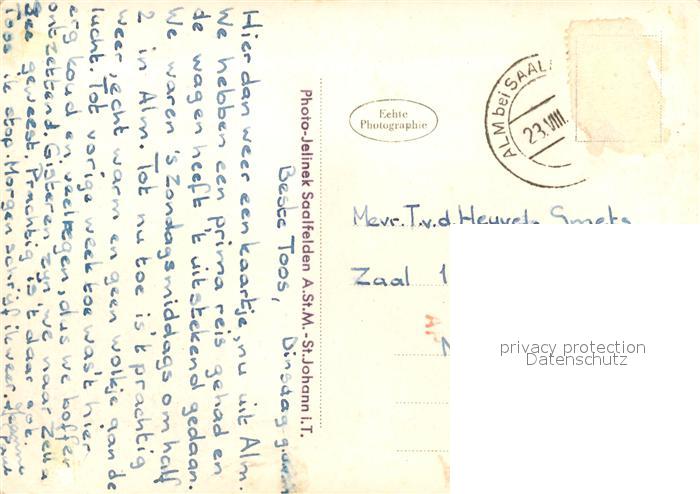 Beste Toos, Dinsdag
Hier dan weer een kaartje, nu uit Alm.
We hebben een prima reis gehad en
de wagen heeft 't uitstekend gedaan.
We waren 's Zondagsmiddags om half
2 in Alm. Tot nu toe is 't prachtig
weer, echt warm en geen wolkje aan de
lucht. Tot vorige week toe was 't hier
erg koud en veel regen, dus we boffen
ontzettend. Gisteren zijn we naar Zell a
See geweest. Prachtig is 't daar ook.
Toos ik stop. Morgen schrijf ik weer.
Photo-Jelinek Saalfelden A.St.M.-St.Johann i.T.
Echte
Photographie
ALM bei SAAL
23.VIII.
Mevr. T.v.d. Heuvel-Smets
Zaal 1
privacy protection
Datenschutz